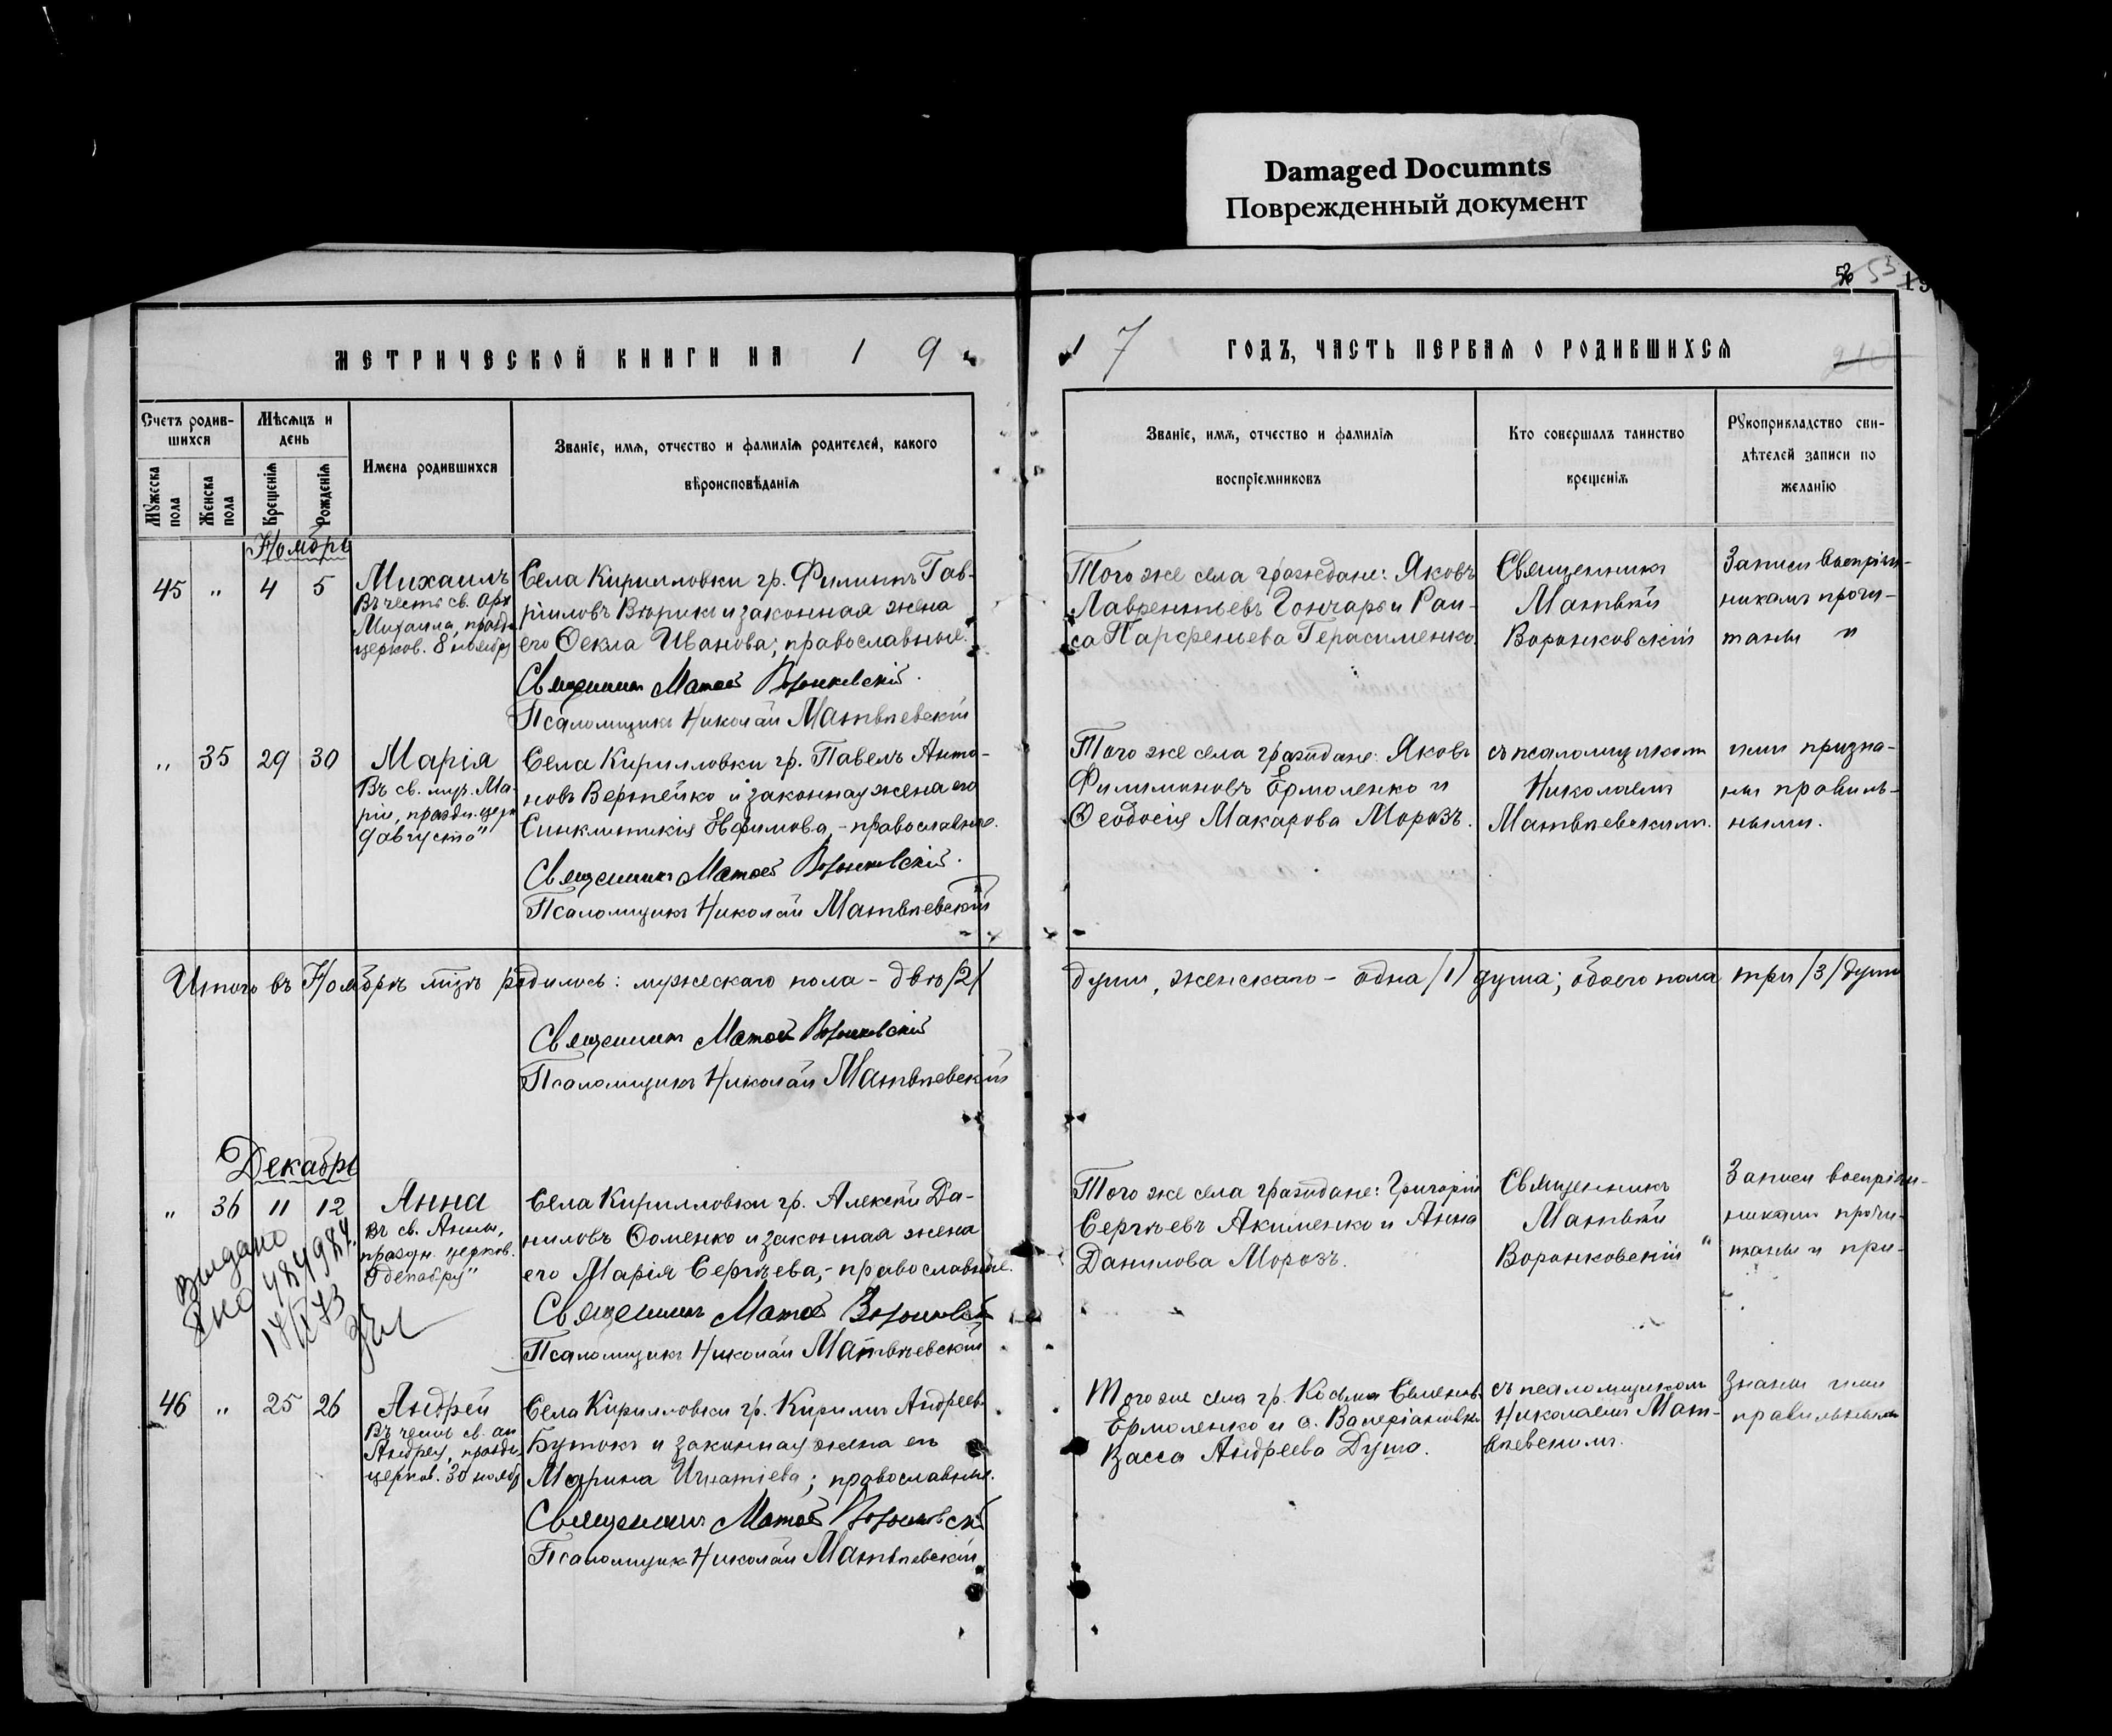 Damaged Documnts
Поврежденный документ
53
МЕТРИЧЕСКОЙ КНИГИ НА 1 9
1 7 ГОДЪ, ЧАСТЬ ПЕРВАЯ О РОДИВШИХСЯ
Счетъ родив-
шихся
Мужеска пола
Женска пола
Мѣсяцъ и
день
Крещенія
Рожденія
Имена родившихся
Званіе, имя, отчество и фамилія родителей, какого
вѣроисповѣданія
Званіе, имя, отчество и фамилія
воспріемниковъ
Кто совершалъ таинство
крещенія
Рукоприкладство сви-
дѣтелей записи по
желанію
Ноябрь
45 " 4 5
Михаилъ
Въ честь св. Арх
Михаила, праздн
церков. 8 ноября
Села Кирилловки гр. Филиппъ Гав-
ріиловъ и законная жена
его Ѳекла Иванова; православные.
Священникъ Матѳей Воронковскій.
Псаломщикъ Николай Матвѣевскій
Того же села граждане: Яковъ
Лаврентьевъ Гончаръ и Раи-
са Парфеньева Герасименко.
Священникъ
Матвѣй
Воронковскій
Записи воспріем-
никамъ прочи-
таны и
" 35 29 30
Марія
Въ св. муч. Ма-
ріи, праздн. церк
9 августа"
Села Кирилловки гр. Павелъ Анто-
новъ Вертейко и законная жена его
Синклитикія Евфимова, - православные.
Священникъ Матѳей Воронковскій.
Псаломщикъ Николай Матвѣевскій
Того же села граждане: Яковъ
Филимоновъ Ермоленко и
Ѳеодосія Макарова Морозъ.
съ псаломщикомъ
Николаемъ
Матвѣевскимъ.
ими призна-
ны правиль-
ными.
Итого въ Ноябрѣ мцѣ родилось: мужескаго пола - двѣ /2/
души, женскаго - одна /1/ душа; обоего пола три /3/ души
Священникъ Матѳей Воронковскій
Псаломщикъ Николай Матвѣевскій
Декабрь
" 36 11 12
Анна
Въ св. Анны,
праздн. церков.
9 декабря"
Выдано
484984
18/IV 73
Села Кирилловки гр. Алексѣй Да-
ниловъ Ѳоменко и законная жена
его Марія Сергѣева, - православные.
Священникъ Матѳей Воронковскій
Псаломщикъ Николай Матвѣевскій
Того же села граждане: Григорій
Сергѣевъ Акименко и Анна
Данилова Морозъ.
Священникъ
Матвѣй
Воронковскій "
Записи воспріем-
никами прочи-
таны и при-
46 " 25 26
Андрей
Въ честь св. ап
Андрея, праздн.
церков. 30 ноября
Села Кирилловки гр. Кириллъ Андреевъ
Бутокъ и законная жена его
Марина Игнатіева; православные.
Священникъ Матѳей Воронковскій
Псаломщикъ Николай Матвѣевскій
Того же села гр. Косьма Семеновъ
Ермоленко и с. Валеріановки
Васса Андреева Душа.
съ псаломщикомъ
Николаемъ Мат-
вѣевскимъ.
знаны ими
правильными